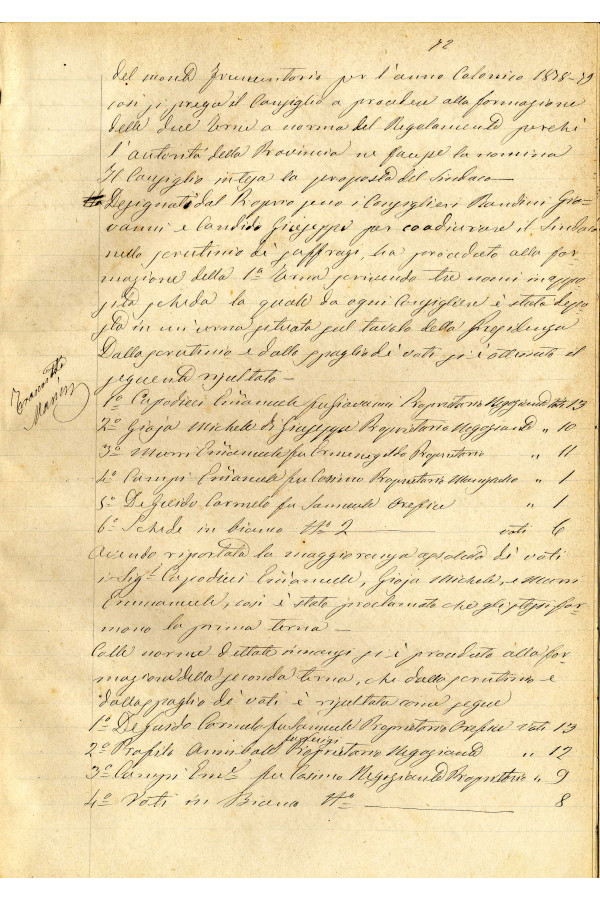 72
del monte frumentario per l'anno Colonico 1878-79
così si prega il Consiglio a procedere alla formazione
delle due terne a norma del Regolamento perchè
l'autorità della Provincia ne faccia la nomina
Il Consiglio intesa la proposta del Sindaco
Designati dal Proprio seno i Consiglieri Bandini Gio-
vanni e Candido Giuseppe per coadiuvare il Sindaco
nello scrutinio di suffragi, ha proceduto alla for
mazione della 1ª terna scrivendo tre nomi in appo
sita scheda la quale da ogni Consigliere è stata depo-
sta in un'urna situata sul tavolo della Presidenza
Dallo scrutinio e dallo spoglio dei voti si è ottenuto il
seguente risultato -
1º Capodieci Emanuele fu Giovanni Proprietario Negoziante voti 13
2º Gioja Michele di Giuseppe Proprietario Negoziante " 10
3º Murri Emanuele fu Ermenegildo Proprietario " 11
4º Campi Emanuele fu Cosimo Proprietario " 1
5º De Guido Carmelo fu Samuele Orefice " 1
6º Schede in bianco Nº 2 voti 6
Avendo riportata la maggioranza assoluta di voti
i Sigi. Capodieci Emanuele, Gioja Michele, e Murri
Emmanuele, così è stato proclamato che gli stessi for-
mono la prima terna -
Colle norme dettate innanzi si è proceduto alla for-
mazione della seconda terna, che dallo scrutinio e
dallo spoglio di voti è risultata come segue
1º De Guido Carmelo fu Samuele Proprietario Orefice voti 13
2º Profilo Annibale fu Luigi Proprietario Negoziante " 12
3º Campi Eml. fu Cosimo Negoziante Proprietario " 9
4º Voti in Bianco Nº 8